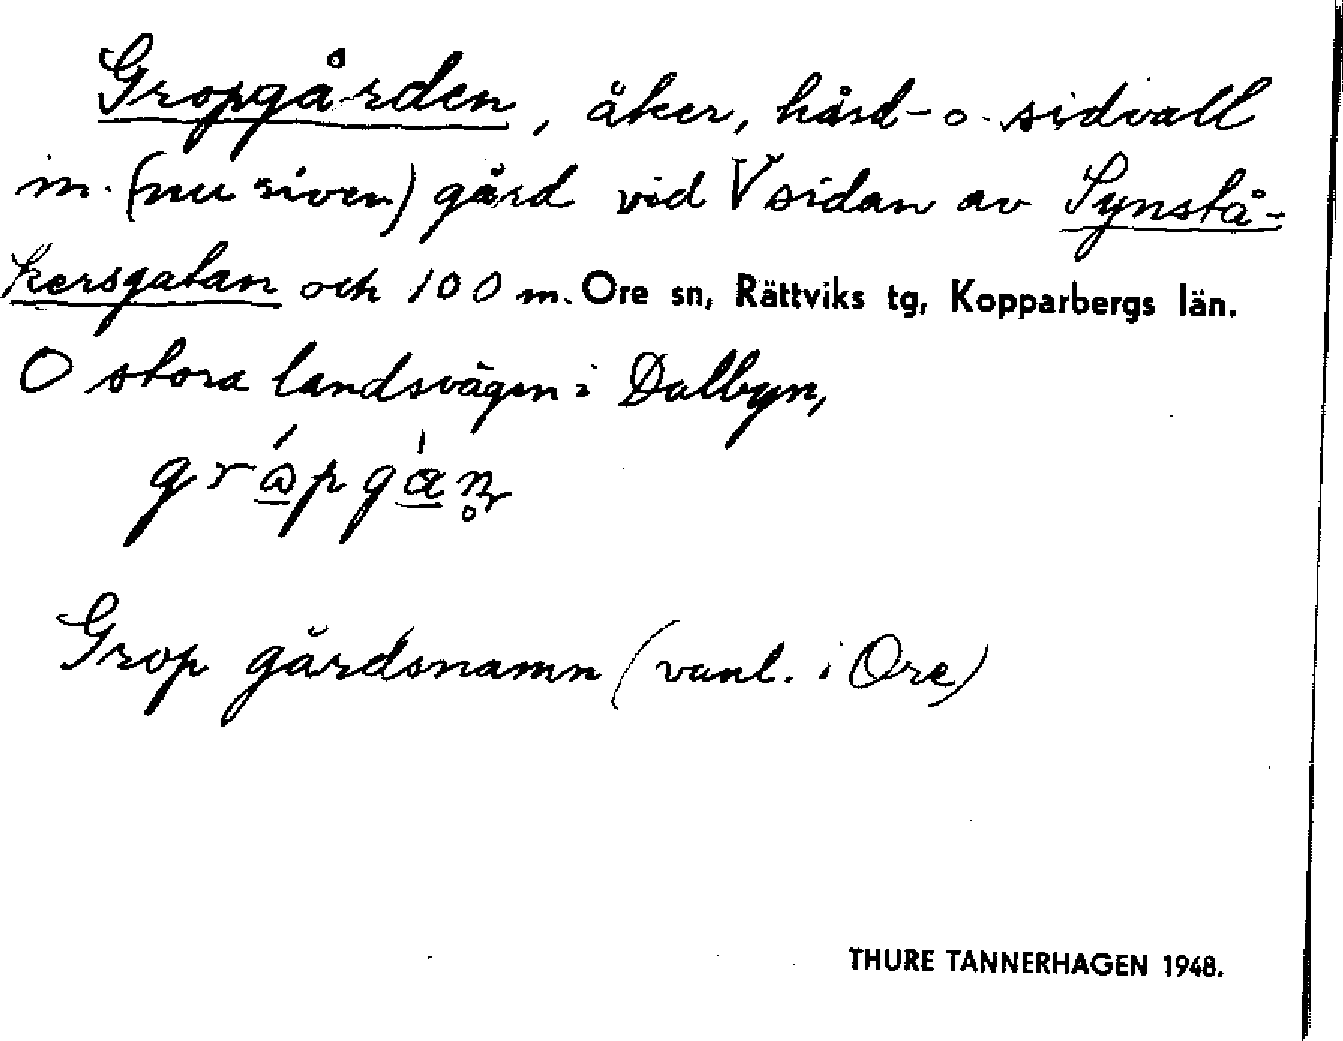 Gropgården, åker, hård- o. sidvall
m. (nu riven) gård vid V sidan av Synstå-
kersgatan och 100 m. Ore sn, Rättviks tg, Kopparbergs län.
O stora landsvägen i Dalbyn,
Grop gårdsnamn (vanl. i Ore)
THURE TANNERHAGEN 1948.